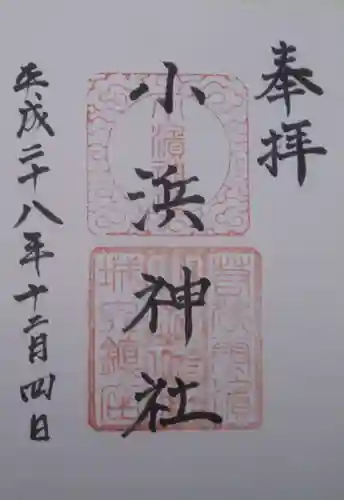 奉拝
小浜神社
平成二十八年十二月四日